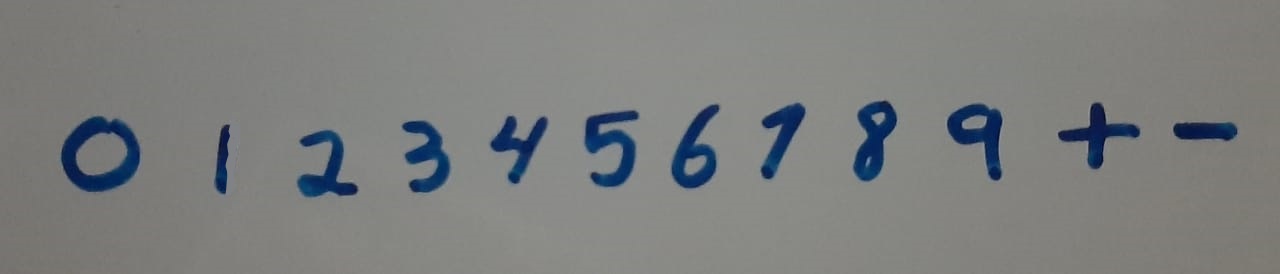 0 1 2 3 4 5 6 7 8 9 + -